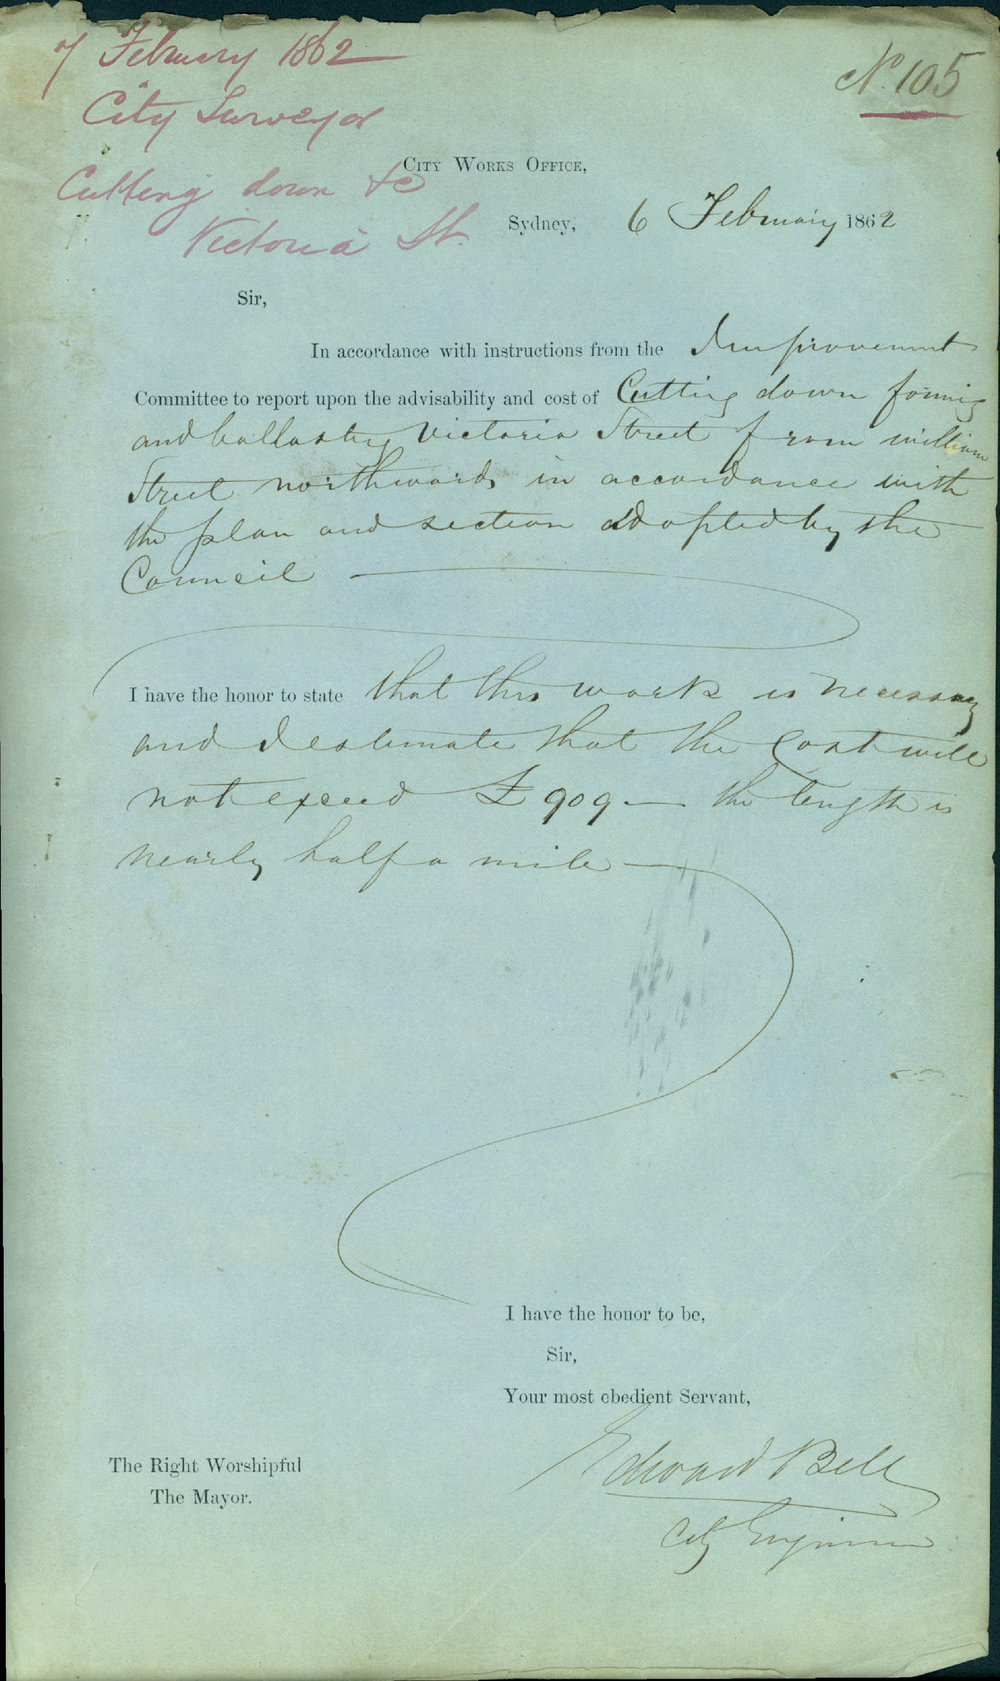 7 February 1862
No. 105
City Surveyor
City Works Office,
Cutting down &c
Victoria St.
Sydney, 6 February 1862
Sir,
In accordance with instructions from the Improvement
Committee to report upon the advisability and cost of Cutting down forming
and ballasting Victoria Street from William
Street northwards in accordance with
the plan and section adopted by the
Council
I have the honor to state that this work is necessary
and I estimate that the Cost will
not exceed £909 — the length is
nearly half a mile
I have the honor to be,
Sir,
Your most obedient Servant,
Edward Bell
City Engineer
The Right Worshipful
The Mayor.